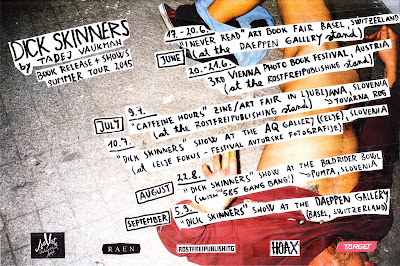 DICK SKINNERS
by TADEJ VAUKMAN
BOOK RELEASE + SHOWS
SUMMER TOUR 2015
JUNE
17. - 20.6. "I NEVER READ" ART BOOK FAIR BASEL, SWITZERLAND
(at the DAEPPEN GALLERY stand)
20.-21.6. 3RD VIENNA PHOTO BOOK FESTIVAL, AUSTRIA
(at the ROSTFREIPUBLISHING stand)
JULY
9.7. "CAFFEINE HOURS" ZINE/ART FAIR IN LJUBLJANA, SLOVENIA
(at the ROSTFREIPUBLISHING stand) → TOVARNA ROG
10.7. "DICK SKINNERS" SHOW AT THE AQ GALLERY (CELJE), SLOVENIA
(at CELJE FOKUS - FESTIVAL AVTORSKE FOTOGRAFIJE)
AUGUST
22.8. "DICK SKINNERS" SHOW AT THE BILDRIDER BOWL
(with "585 GANG BANG!") → PUMPA, SLOVENIA
SEPTEMBER
5.9. "DICK SKINNERS" SHOW AT THE DAEPPEN GALLERY
(BASEL, SWITZERLAND)
RAEN
ROSTFREIPUBLISHING
HOAX
TARGET